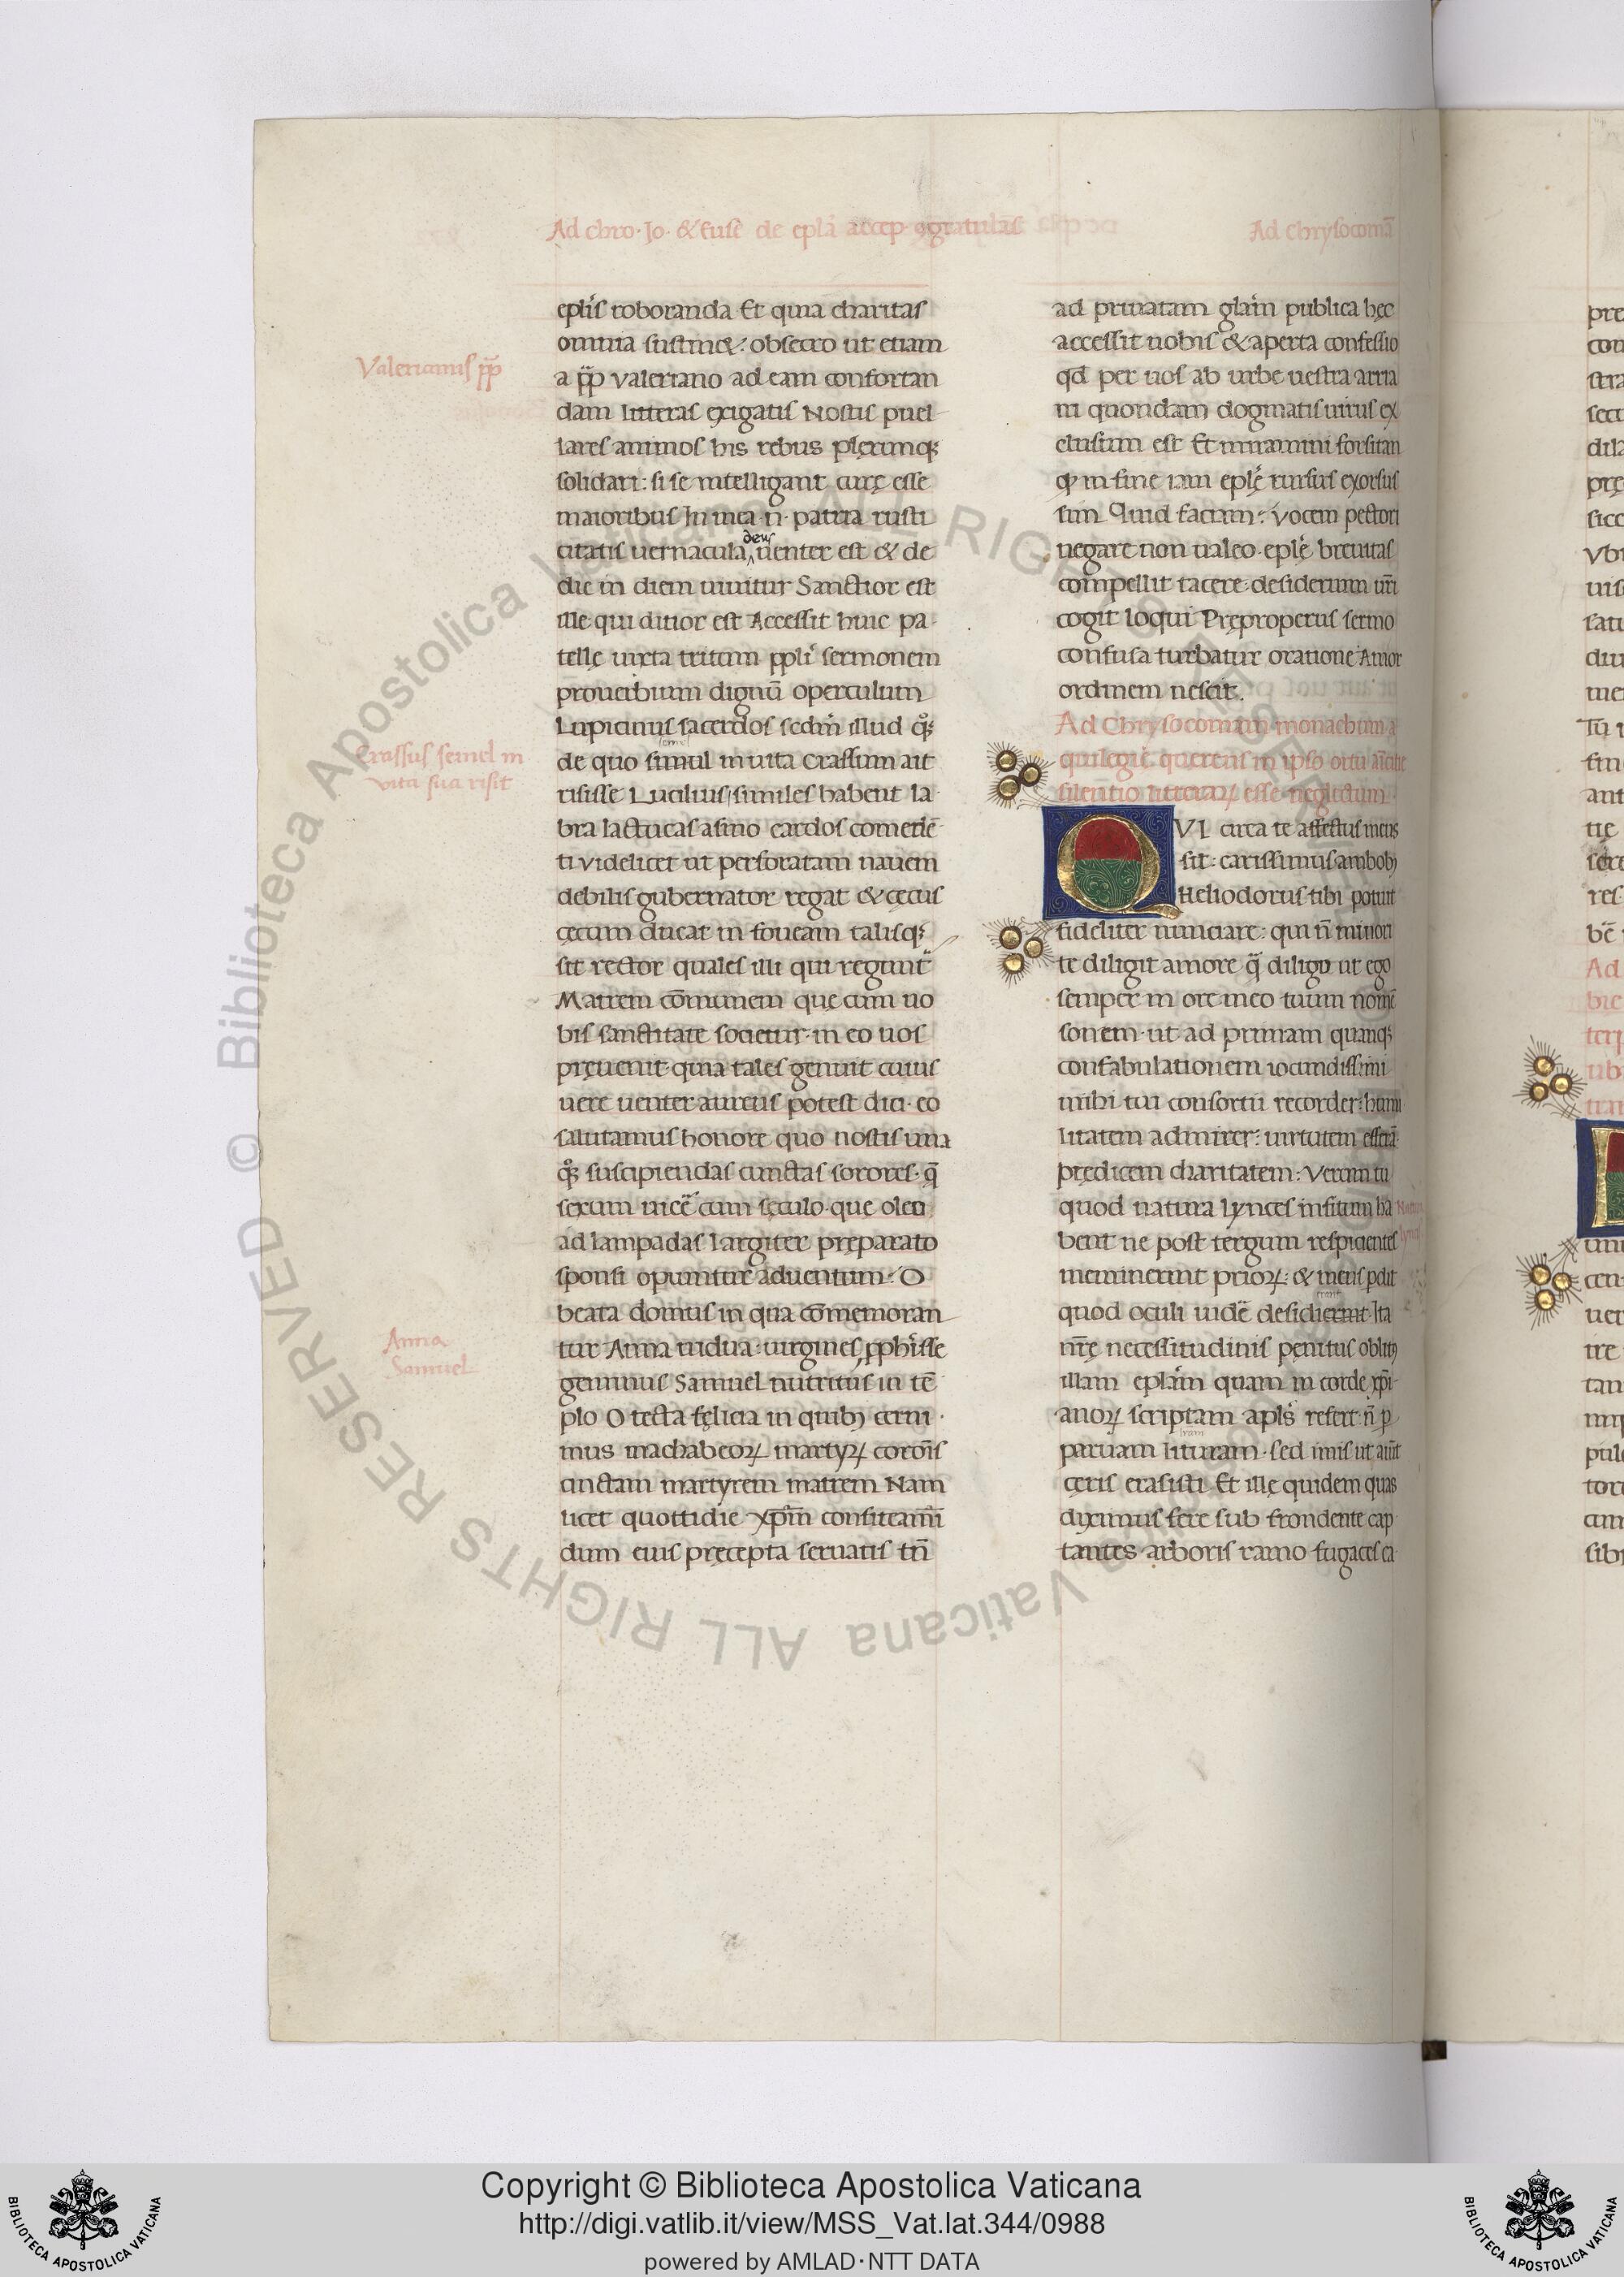 Ad chro · Jo · & Euse de epl̄a accep 9gratulat̄
Ad Chrysocomā
Valerianus pp̄
Crassus semel in
vita sua risit
Anna
Samuel
epl̄is roboranda Et quia charitas
omnia sustinet: obsecro ut etiam
a pp̄ valeriano ad eam confortan
dam litteras exigatis Nostis puel
lares animos his rebus plerunq;
solidari: si se intelligant curę esse
maioribus In mea .n̄. patria rusti
citatis uernacula deus uenter est & de
die in diem uiuitur Sanctior est
ille qui ditior est Accessit huic pa
tellę iuxta tritum ppl̄i sermonem
prouerbium dignū operculum
Lupicinus sacerdos secdm̄ illud q°q;
de quo simul in uita Crassum ait
semel
risisse Lucilius similes habent la
bra lactucas asino cardos comedē
ti videlicet ut perforatam nauem
debilis gubernator regat & cęcus
cęcum ducat in foueam talisq;
sit rector quales illi qui regunt̄
Matrem cōmunem que cum uo
bis sanctitate societur · in eo uos
pręuenit · quia tales genuit cuius
uere uenter aureus potest dici · eo
salutamus honore quo nostis una
q°q; suscipiendas cunctas sorores · q̄
sexum uicē cum sęculo · que oleo
ad lampadas largiter pręparato
sponsi opiuntur aduentum: O
beata domus in qua cōmemoran
tur Anna uidua: uirgines pphīsse
geminus Samuel nutritus in tē
plo O tecta felicia in quib; cerni
mus machabeoꝝ martyꝝ coronis
cinctam martyrem matrem Nam
licet quottidie xp̄m confiteamī
dum eius pręcepta seruatis tn̄
ad priuatam gl̄am publica hęc
accessit uobis & aperta confessio
qd̄ per uos ab urbe uestra arria
ni quondam dogmatis uirus ex
clusum est Et miramini forsitan
qꝫ in fine iam eplę rursus exorsus
sim Quid faciam: vocem pectori
negare non ualeo · eplę breuitas
compellit tacere · desiderium ur̄i
cogit loqui Pręproperus sermo
confusa turbatur oratione Amor
ordinem nescit.
Ad Chrysocomam monachum a
quilegię querens in ipso ortu amicitię
silentio litteraꝝ esse neglectum
QVI circa te affectus meus
sit: carissimus ambob;
Heliodorus tibi potuit
fideliter nunciare: qui n̄ minori
te diligit amore q̄ diligo ut ego
semper in ore meo tuum nomē
sonem · ut ad primam quanq;
confabulationem iocundissimi
mihi tui consortii recorder: humi
litatem admirer: uirtutem efferā:
prędicem charitatem: Verum tu
quod natura lynces insitum ha
bent ne post tergum respicientes
meminerint prioꝝ: & mens pdit
quod oculi uidē desidierant · Ita
nr̄ę necessitudinis penitus oblit9
illam epl̄am quam in corde xp̄i
anoꝝ scriptam apl̄s refert · n̄ p
paruam lituram · sed imis ut aiūt
cęris erasisti · Et illę quidem quas
diximus fere sub frondente cap
tantes arboris ramo fugaces ca
Copyright © Biblioteca Apostolica Vaticana
http://digi.vatlib.it/view/MSS_Vat.lat.344/0988
powered by AMLAD · NTT DATA
BIBLIOTECA APOSTOLICA VATICANA
BIBLIOTECA APOSTOLICA VATICANA
© Biblioteca Apostolica Vaticana ALL RIGHTS RESERVED